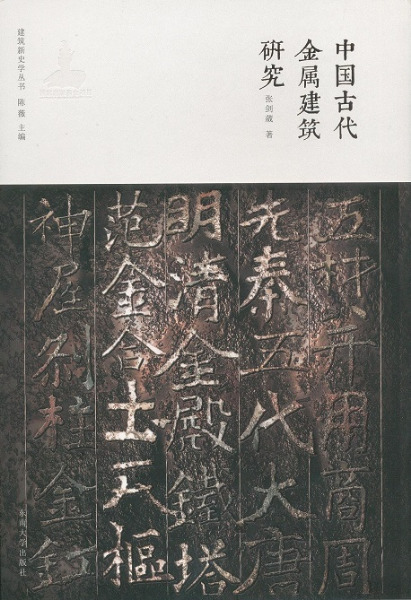 中国古代
金属建筑
研究
张剑葳 著
建筑新史学丛书 陈薇 主编
五材并用商周
先秦五代大唐
明清金殿鐵塔
范金合土天樞
神柱金釭
东南大学出版社